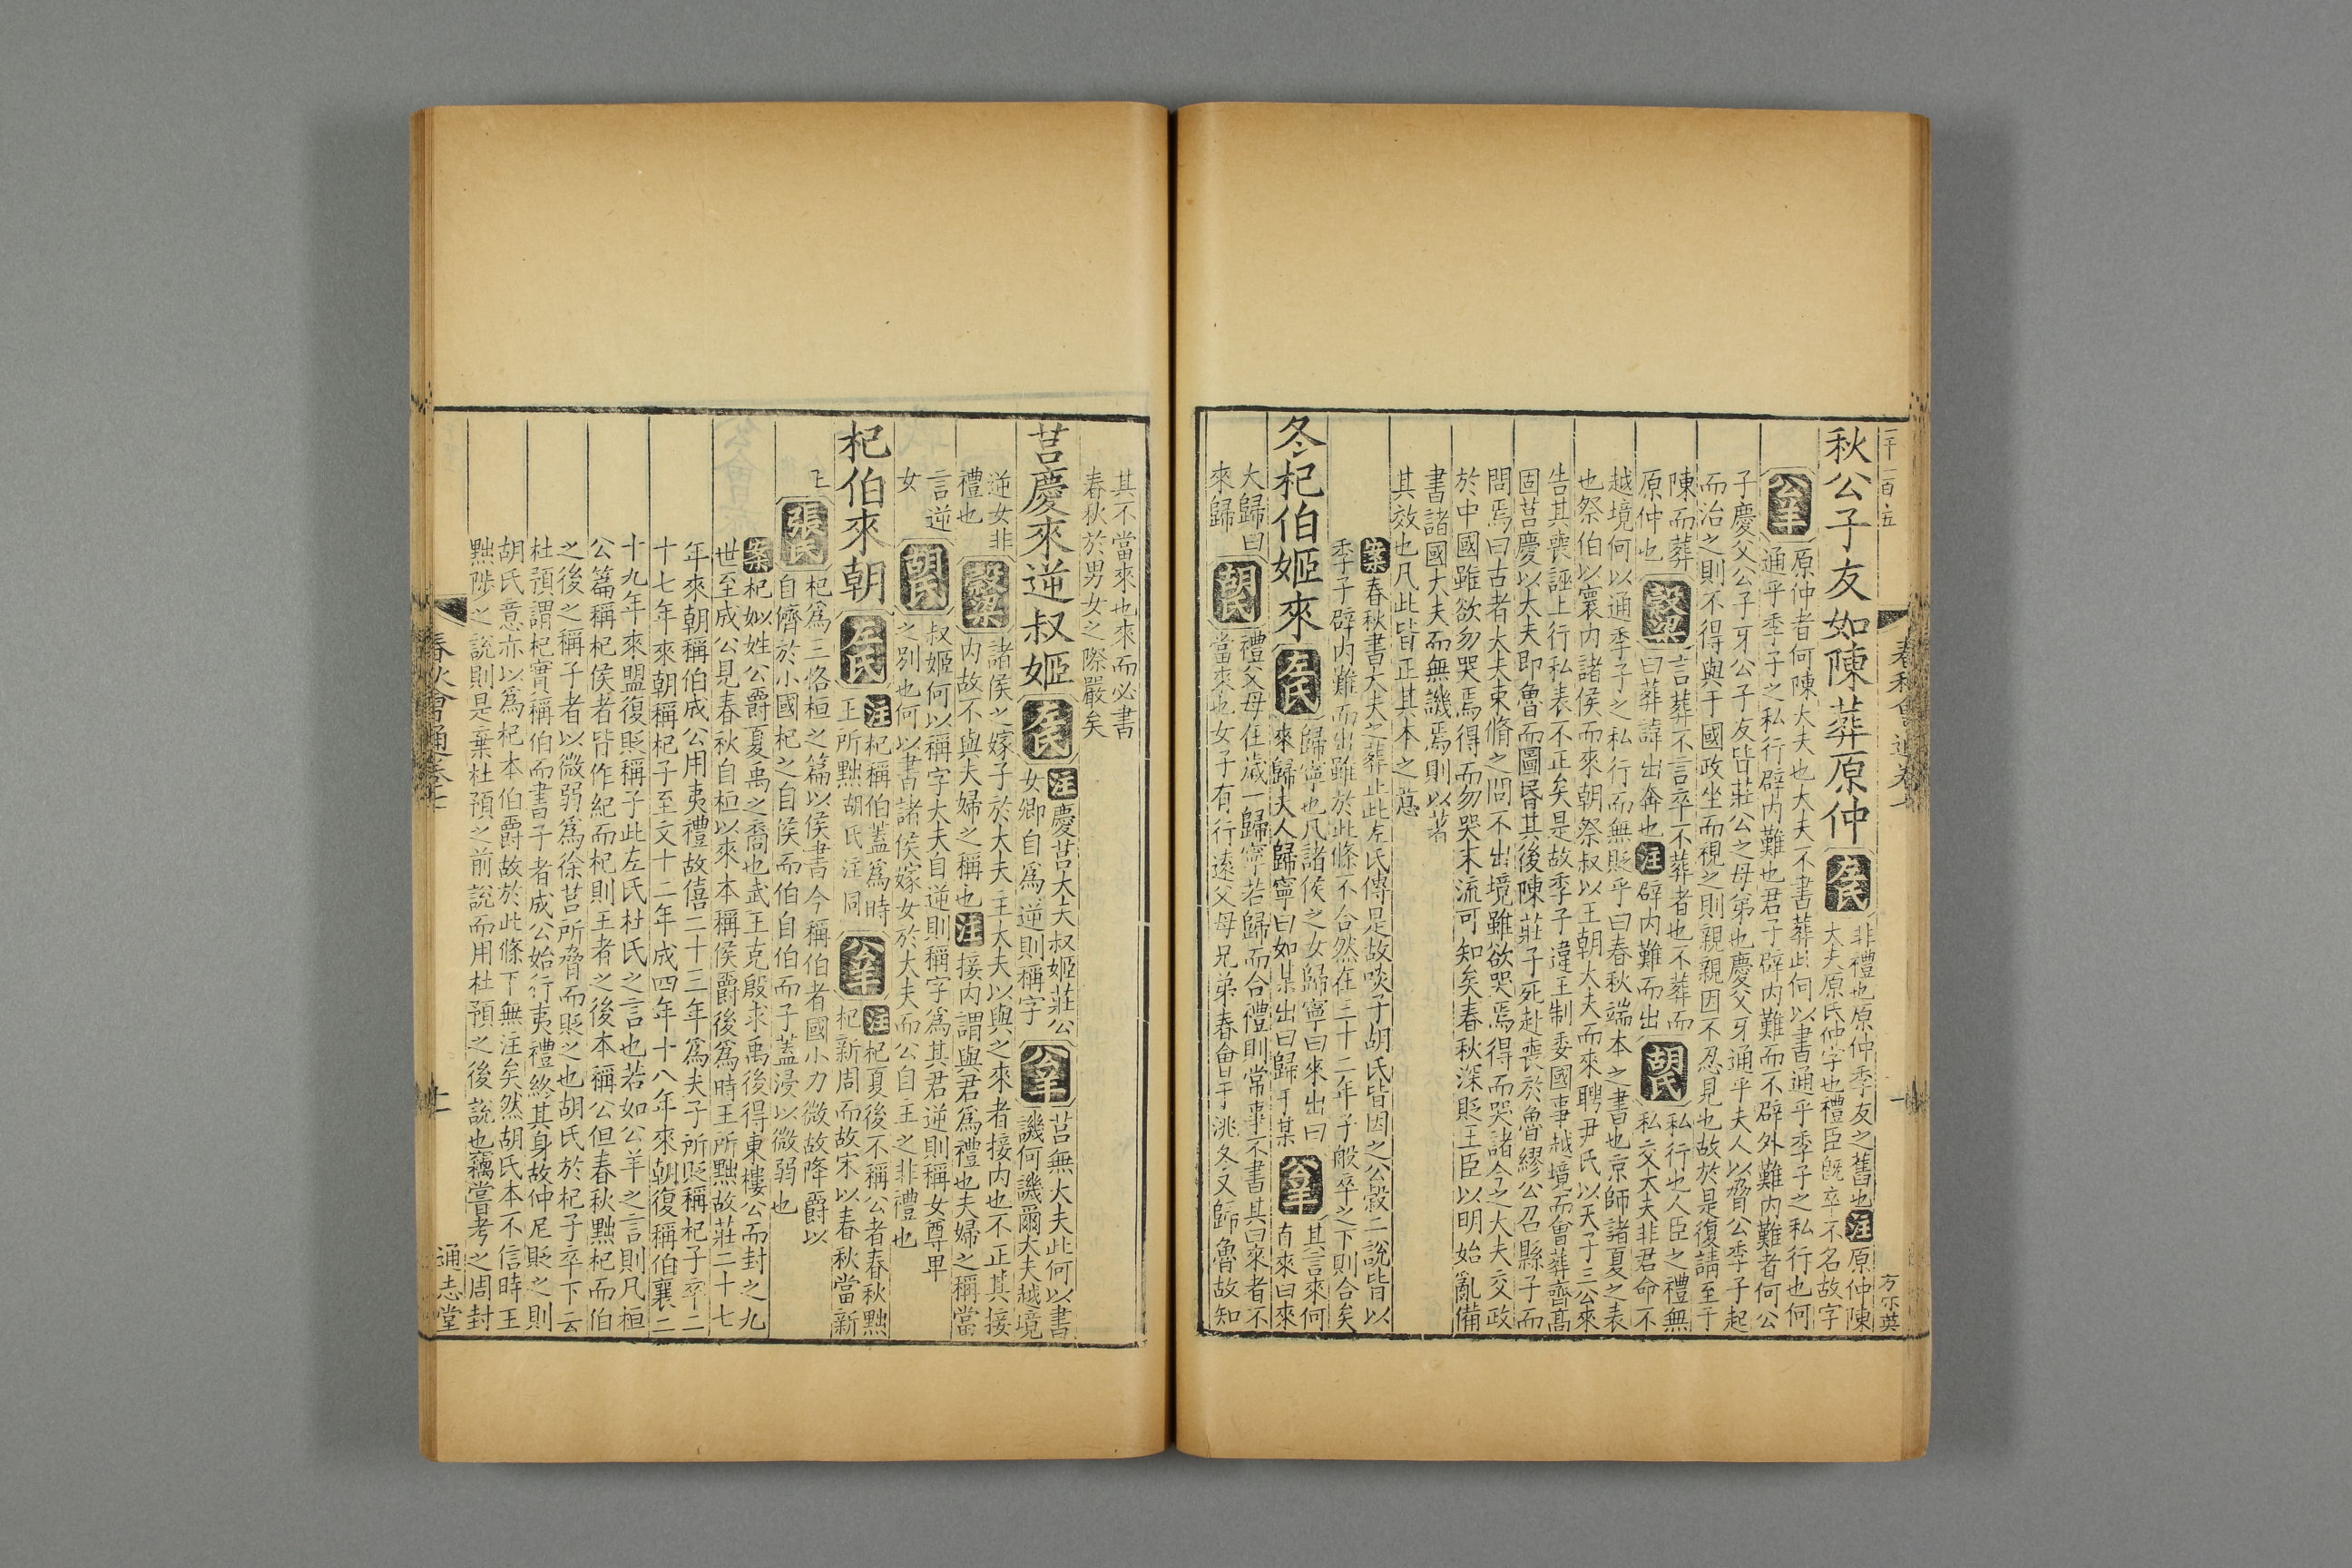 一千一百五
春秋會通卷
方不英
秋公子友如陳葬原仲
左氏
非禮也原仲季友之舊也注原仲陳
大夫原氏仲字也禮臣旣卒不名故字
公羊
原仲者何陳大夫也大夫不書葬此何以書通乎季子之私行也何
通乎季子之私行辟内難也君子辟内難而不辟外難内難者何公
子慶父公子牙公子友皆莊公之母弟也慶父牙通乎夫人以脅公季子起
而治之則不得與于國政坐而視之則親親因不忍見也故於是復請至于
陳而葬
原仲也
穀梁
言葬不言卒不葬者也不葬而
曰葬諱出奔也注辟内難而出
胡氏
私行也人臣之禮無
私交大夫非君命不
越境何以通季子之私行而無貶乎曰春秋端本之書也京師諸夏之表
也祭伯以寰内諸侯而來朝祭叔以王朝大夫而來聘尹氏以天子三公來
告其喪誣上行私表不正矣是故季子違王制委國事越境而會葬齊髙
固莒慶以大夫即魯而圖昬其後陳莊子死赴喪於魯繆公召縣子而
問焉曰古者大夫束脩之問不出境雖欲哭焉得而哭諸今之大夫交政
於中國雖欲勿哭焉得而勿哭末流可知矣春秋深貶王臣以明始亂備
書諸國大夫而無譏焉則以著
其效也凡此皆正其本之意
案春秋書大夫之葬止此左氏傳是故啖子胡氏皆因之公穀二說皆以
季子辟内難而出雖於此條不合然在三十二年子般卒之下則合矣
冬杞伯姬來
左氏
歸寧也凡諸侯之女歸寧曰來出曰
來歸夫人歸寧曰如某出曰歸于某
公羊
其言來何
直來曰來
大歸曰
來歸
胡氏
禮父母在歲一歸寧若歸而合禮則常事不書其曰來者不
當來也女子有行遠父母兄弟春會于洮冬又歸魯故知
其不當來也來而必書
春秋於男女之際嚴矣
莒慶來逆叔姬
左氏
注慶莒大夫叔姬莊公
女卿自爲逆則稱字
公羊
莒無大夫此何以書
譏何譏爾大夫越境
逆女非
禮也
穀梁
諸侯之嫁子於大夫主大夫以與之來者接内也不正其接
内故不與夫婦之稱也注接内謂與君爲禮也夫婦之稱當
言逆
女
胡氏
叔姬何以稱字大夫自逆則稱字爲其君逆則稱女尊卑
之别也何以書諸侯嫁女於大夫而公自主之非禮也
杞伯來朝
左氏
注杞稱伯蓋爲時
王所黜胡氏注同
公羊
注杞夏後不稱公者春秋黜
杞新周而故宋以春秋當新
王
張氏
杞爲三恪桓之篇以侯書今稱伯者國小力微故降爵以
自儕於小國杞之自侯而伯自伯而子蓋浸以微弱也
案杞姒姓公爵夏禹之裔也武王克殷求禹後得東樓公而封之九
世至成公見春秋自桓以來本稱侯爵後爲時王所黜故莊二十七
年來朝稱伯成公用夷禮故僖二十三年爲夫子所貶稱杞子卒二
十七年來朝稱杞子至文十二年成四年十八年來朝復稱伯襄二
十九年來盟復貶稱子此左氏杜氏之言也若如公羊之言則凡桓
公篇稱杞侯者皆作紀而杞則王者之後本稱公但春秋黜杞而伯
之後之稱子者以微弱爲徐莒所脅而貶之也胡氏於杞子卒下云
杜預謂杞實稱伯而書子者成公始行夷禮終其身故仲尼貶之則
胡氏意亦以爲杞本伯爵故於此條下無注矣然胡氏本不信時王
黜陟之說則是棄杜預之前說而用杜預之後說也竊嘗考之周封
春秋會通卷七
十一
通志堂